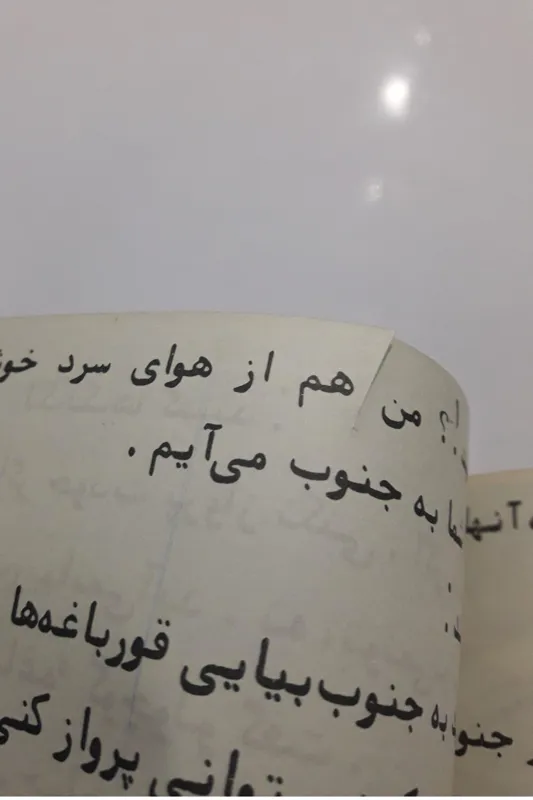 من هم از هوای سرد
به جنوب می‌آیم .
آنها
به جنوب بیایی قورباغه‌ها
توانی پرواز